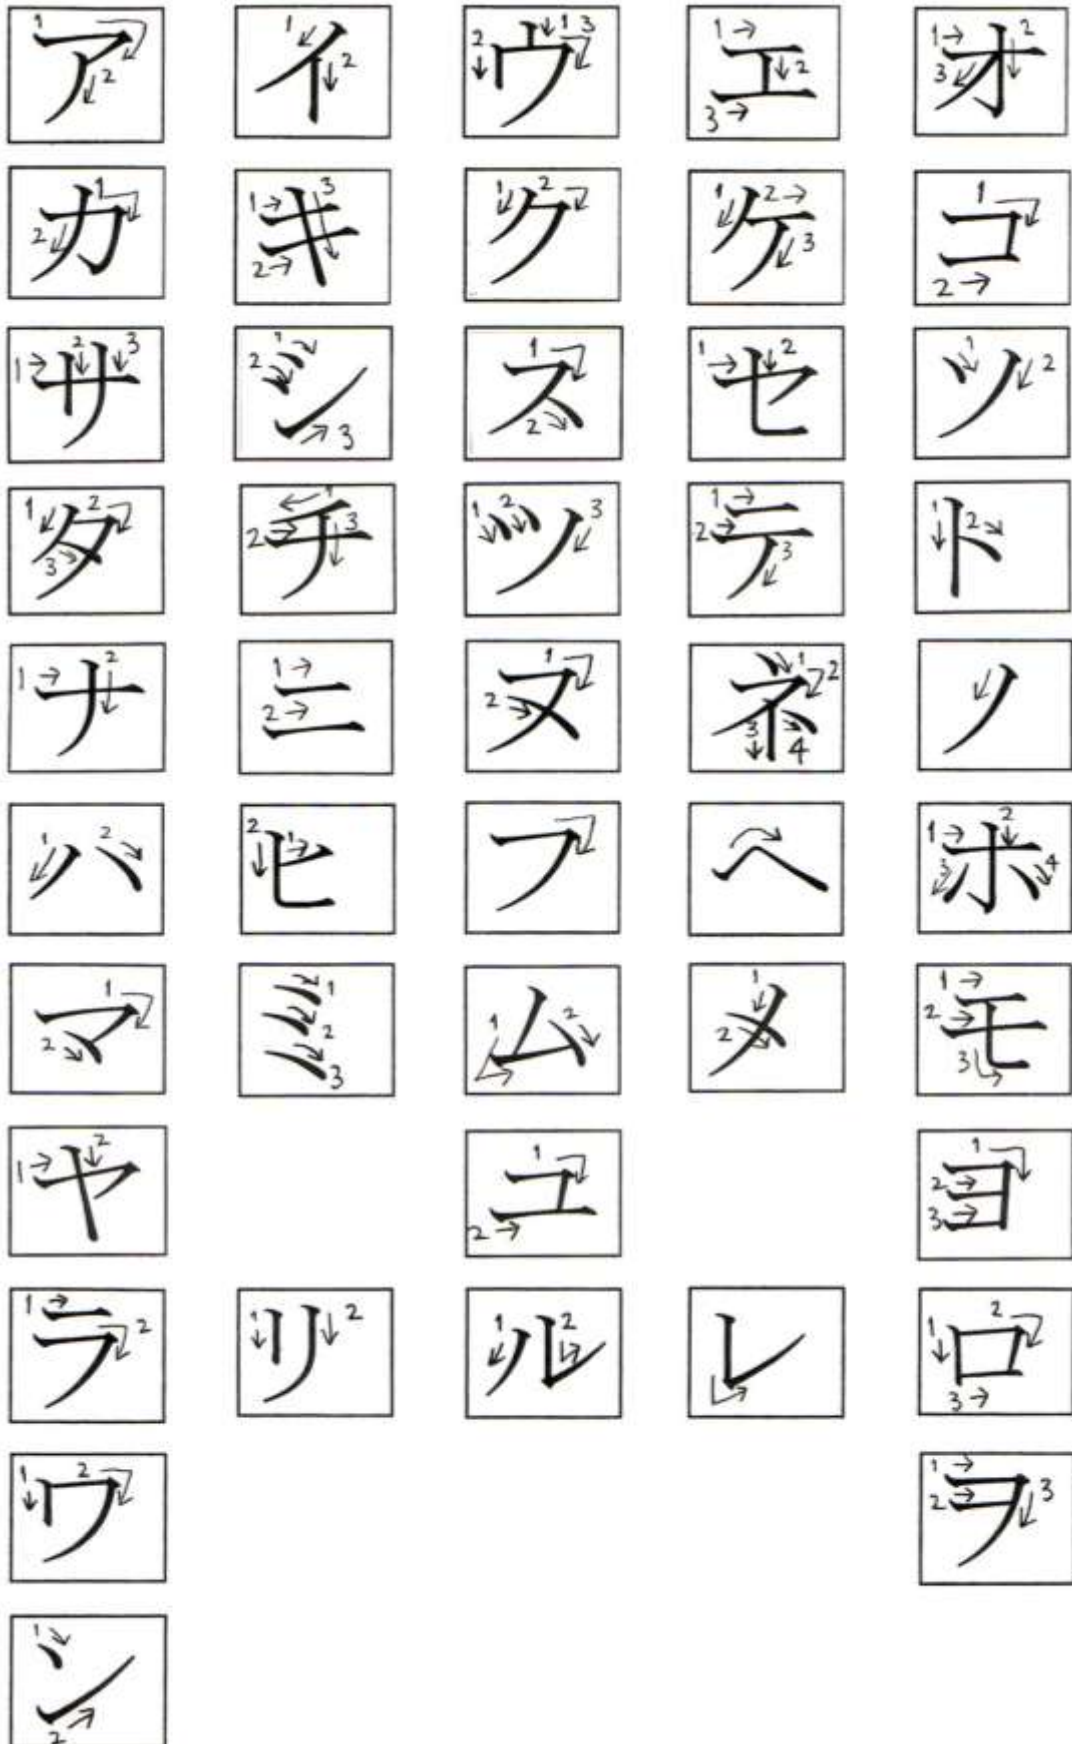 ア イ ウ エ オ
カ キ ク ケ コ
サ シ ス セ ソ
タ チ ツ テ ト
ナ ニ ヌ ネ ノ
ハ ヒ フ ヘ ホ
マ ミ ム メ モ
ヤ ユ ヨ
ラ リ ル レ ロ
ワ ヲ
ン